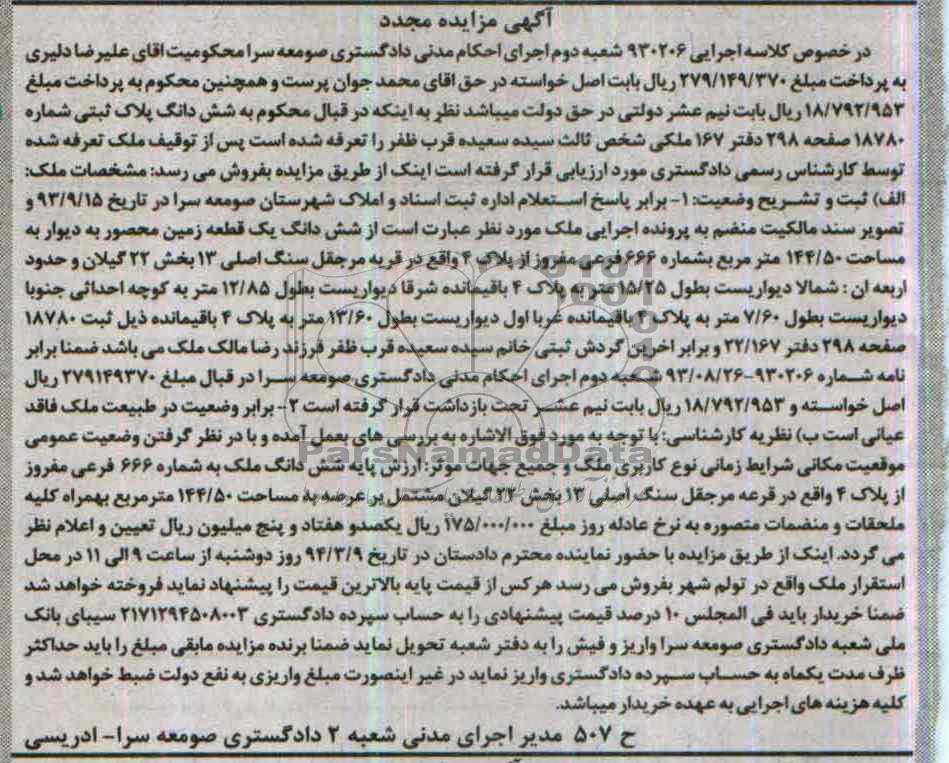 آگهی مزایده مجدد
در خصوص کلاسه اجرایی ۹۳۰۲۰۶ شعبه دوم اجرای احکام مدنی دادگستری صومعه سرا محکومیت اقای علیرضا دلیری
به پرداخت مبلغ ۲۷۹/۱۴۹/۳۷۰ ریال بابت اصل خواسته در حق اقای محمد جوان پرست و همچنین محکوم به پرداخت مبلغ
۱۸/۷۹۲/۹۵۳ ریال بابت نیم عشر دولتی در حق دولت میباشد نظر به اینکه در قبال محکوم به شش دانگ پلاک ثبتی شماره
۱۸۷۸۰ صفحه ۲۹۸ دفتر ۱۶۷ ملکی شخص ثالث سیده سعیده قرب ظفر را تعرفه شده است پس از توقیف ملک تعرفه شده
توسط کارشناس رسمی دادگستری مورد ارزیابی قرار گرفته است اینک از طریق مزایده بفروش می رسد: مشخصات ملک:
الف) ثبت و تشریح وضعیت: ۱- برابر پاسخ استعلام اداره ثبت اسناد و املاک شهرستان صومعه سرا در تاریخ ۹۳/۹/۱۵ و
تصویر سند مالکیت منضم به پرونده اجرایی ملک مورد نظر عبارت است از شش دانگ یک قطعه زمین محصور به دیوار به
مساحت ۱۴۴/۵۰ متر مربع بشماره ۶۶۶ فرعی مفروز از پلاک ۴ واقع در قریه مرجقل سنگ اصلی ۱۳ بخش ۲۲ گیلان و حدود
اربعه ان : شمالا دیواریست بطول ۱۵/۲۵ متر به پلاک ۴ باقیمانده شرقا دیواریست بطول ۱۲/۸۵ متر به کوچه احداثی جنوبا
دیواریست بطول ۷/۶۰ متر به پلاک ۴ باقیمانده غربا اول دیواریست بطول ۱۳/۶۰ متر به پلاک ۴ باقیمانده ذیل ثبت ۱۸۷۸۰
صفحه ۲۹۸ دفتر ۲۲/۱۶۷ و برابر اخرین گردش ثبتی خانم سیده سعیده قرب ظفر فرزند رضا مالک ملک می باشد ضمنا برابر
نامه شماره ۹۳۰۲۰۶-۹۳/۰۸/۲۶ شعبه دوم اجرای احکام مدنی دادگستری صومعه سرا در قبال مبلغ ۲۷۹۱۴۹۳۷۰ ریال
اصل خواسته و ۱۸/۷۹۲/۹۵۳ ریال بابت نیم عشر تحت بازداشت قرار گرفته است ۲- برابر وضعیت در طبیعت ملک فاقد
عیانی است ب) نظریه کارشناسی: با توجه به مورد فوق الاشاره به بررسی های بعمل آمده و با در نظر گرفتن وضعیت عمومی
موقعیت مکانی شرایط زمانی نوع کاربری ملک و جمیع جهات موثر: ارزش پایه شش دانگ ملک به شماره ۶۶۶ فرعی مفروز
از پلاک ۴ واقع در قرعه مرجقل سنگ اصلی ۱۳ بخش ۲۲ گیلان مشتمل بر عرصه به مساحت ۱۴۴/۵۰ مترمربع بهمراه کلیه
ملحقات و منضمات متصوره به نرخ عادله روز مبلغ ۱۷۵/۰۰۰/۰۰۰ ریال یکصدو هفتاد و پنج میلیون ریال تعیین و اعلام نظر
می گردد. اینک از طریق مزایده با حضور نماینده محترم دادستان در تاریخ ۹۴/۳/۹ روز دوشنبه از ساعت ۹ الی ۱۱ در محل
استقرار ملک واقع در تولم شهر بفروش می رسد هرکس از قیمت پایه بالاترین قیمت را پیشنهاد نماید فروخته خواهد شد
ضمنا خریدار باید فی المجلس ۱۰ درصد قیمت پیشنهادی را به حساب سپرده دادگستری ۲۱۷۱۲۹۴۵۰۸۰۰۳ سیبای بانک
ملی شعبه دادگستری صومعه سرا واریز و فیش را به دفتر شعبه تحویل نماید ضمنا برنده مزایده مابقی مبلغ را باید حداکثر
ظرف مدت یکماه به حساب سپرده دادگستری واریز نماید در غیر اینصورت مبلغ واریزی به نفع دولت ضبط خواهد شد و
کلیه هزینه های اجرایی به عهده خریدار میباشد.
ح ۵۰۷ مدیر اجرای مدنی شعبه ۲ دادگستری صومعه سرا- ادریسی
ParsNamadData